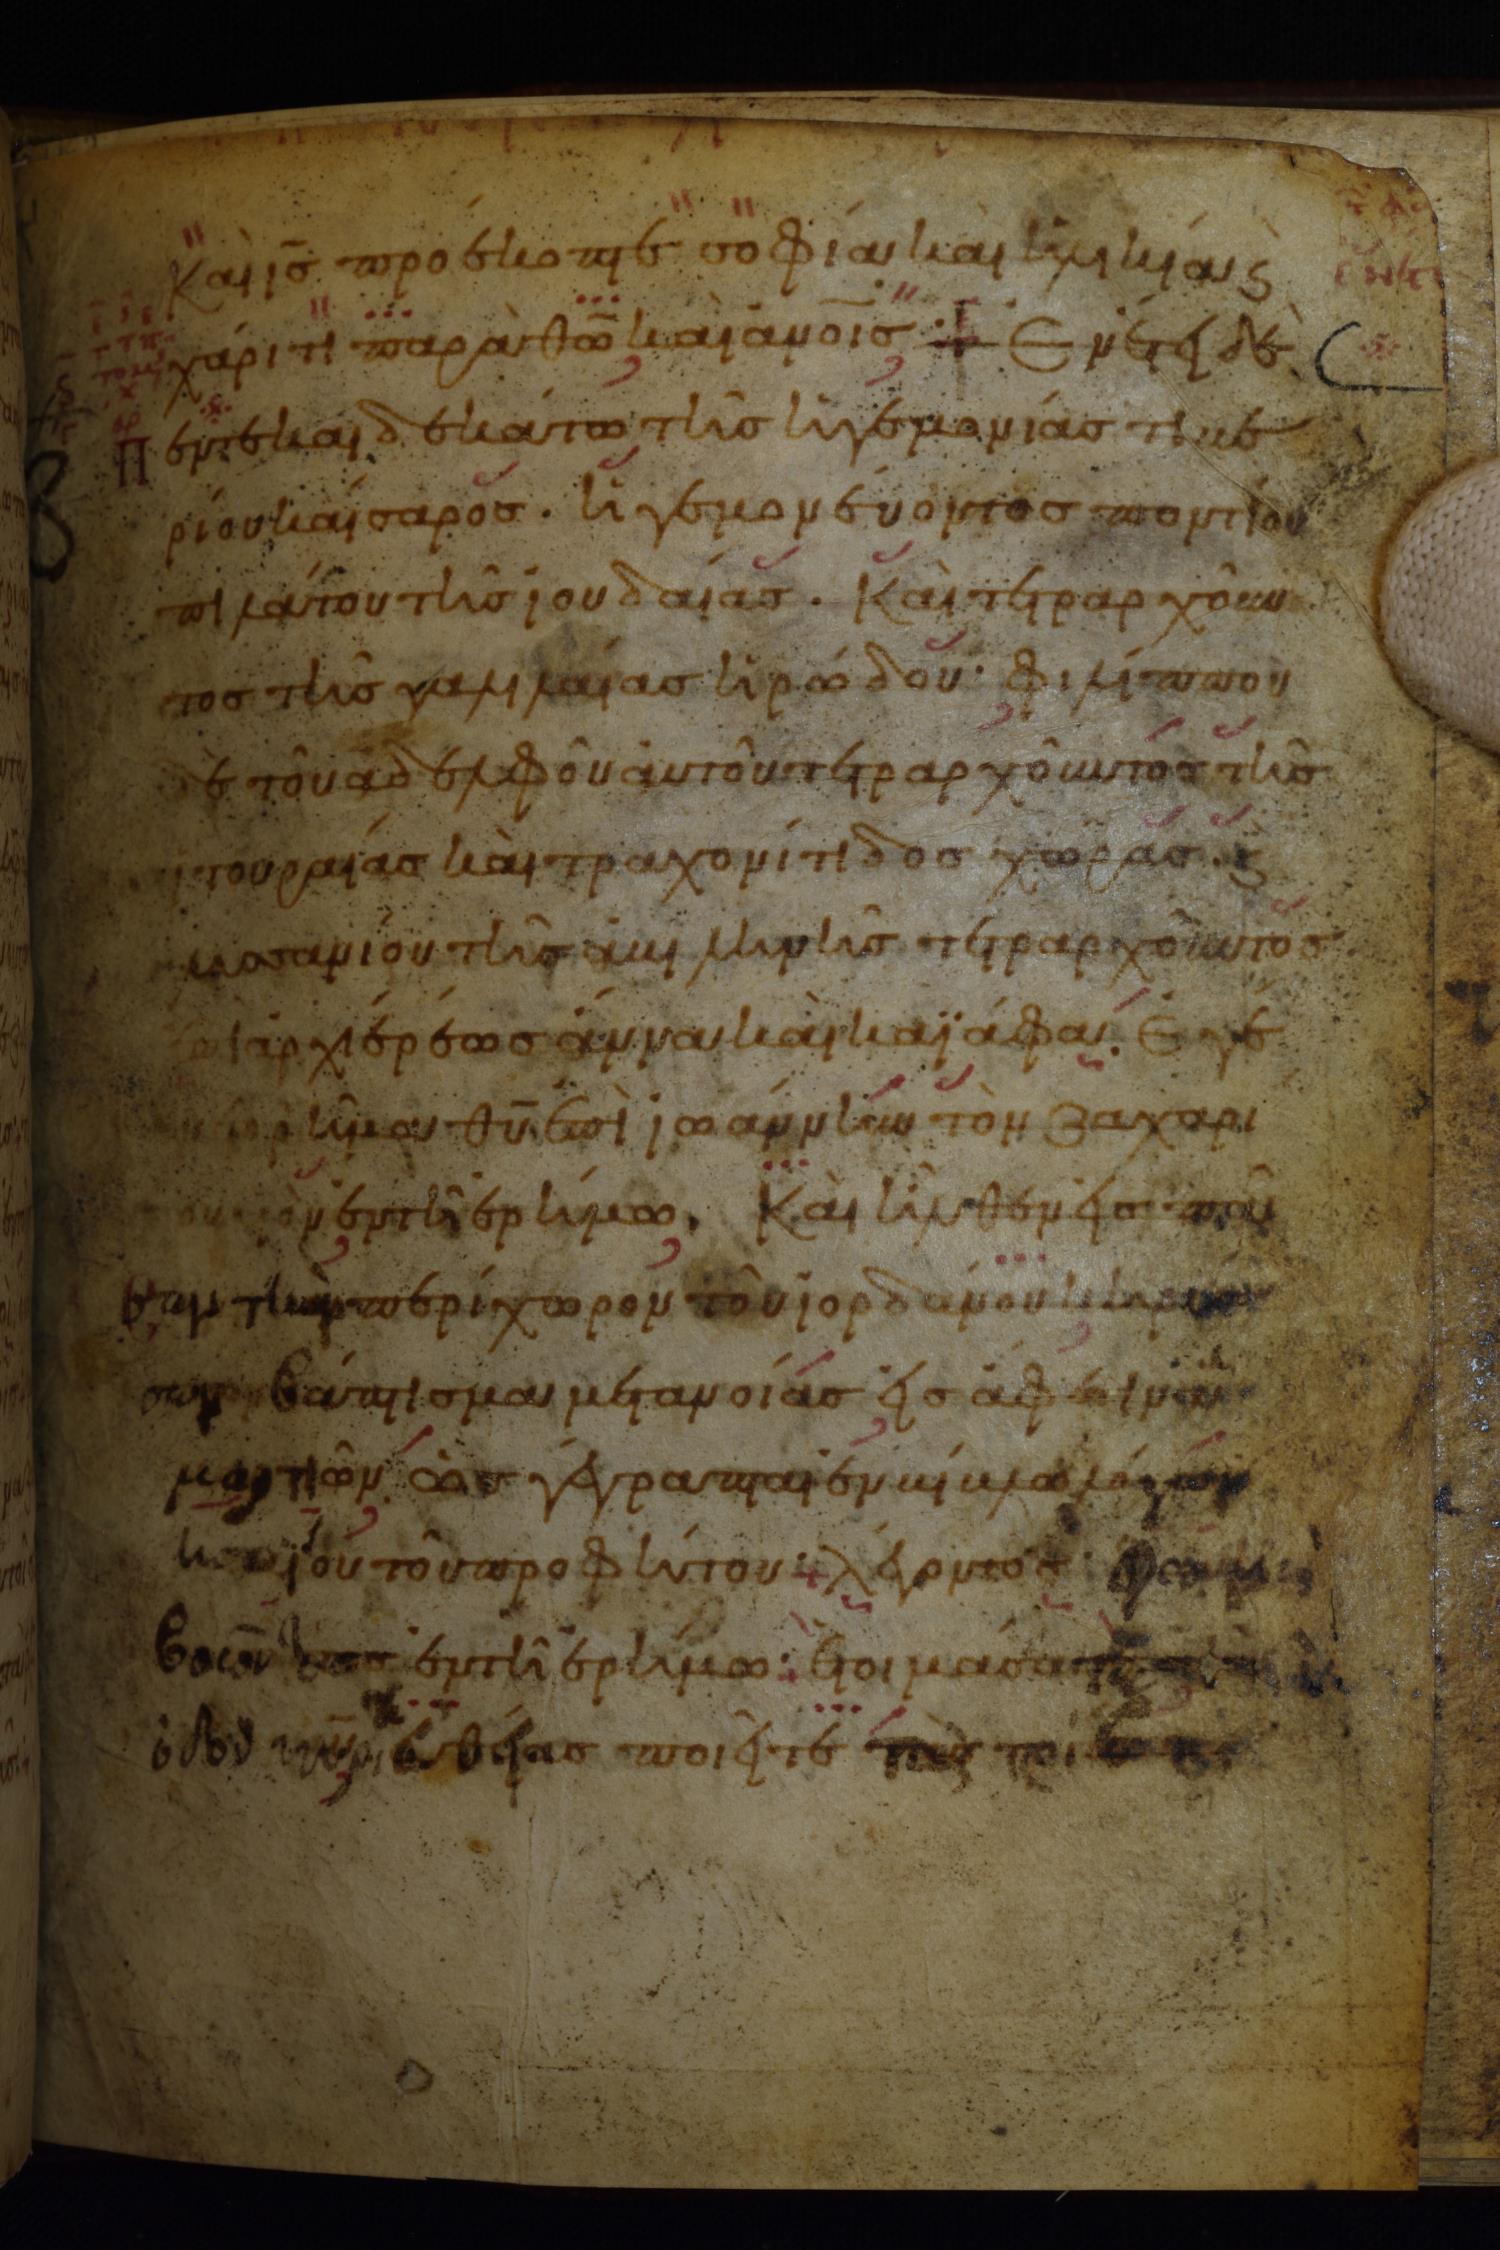 Καὶ ις̅ προέκοπτε σοφία καὶ ἡλικία ς
χάριτι παρὰ θω̅ καὶ ἀνοις̅ · Ἐν ἔτει δὲ
πεντεκαιδεκάτω τῆς ἡγεμονίας τιβε
ρίου καίσαρος . ἡγεμονεύοντος ποντίου
πιλάτου τῆς ἰουδαίας . Καὶ τετραρχοῦν
τος τῆς γαλιλαίας ἡρώδου · φιλίππου
δὲ τοῦ ἀδελφοῦ αὐτοῦ τετραρχοῦντος τῆς
ἰτουραίας καὶ τραχονίτιδος χώρας . ς
λυσανίου τῆς ἀβιληνῆς τετραρχοῦντος
ἐπὶ ἀρχιερέως ἄννα καὶ καϊάφα . Ἐγέ
ῥῆμα θυ̅ ἐπὶ ἰωάννην τὸν ζαχαρί
ἐν τῆ ἐρήμω . Καὶ ἦλθεν εἰς πᾶ
σαν τὴν περίχωρον τοῦ ἰορδάνου κηρύσ
σων βάπτισμα μετανοίας εἰς ἄφεσιν
μαρτιῶν ὡς γέγραπται ἐν βίβλω λόγων
ἡσαΐου τοῦ προφήτου · λέγοντος φωνὴ
βοῶντος ἐν τῆ ἐρήμω · ἑτοιμάσατε τὴν
ὁδὸν κυ̅ εὐθείας ποιεῖτε τὰς τρίβους